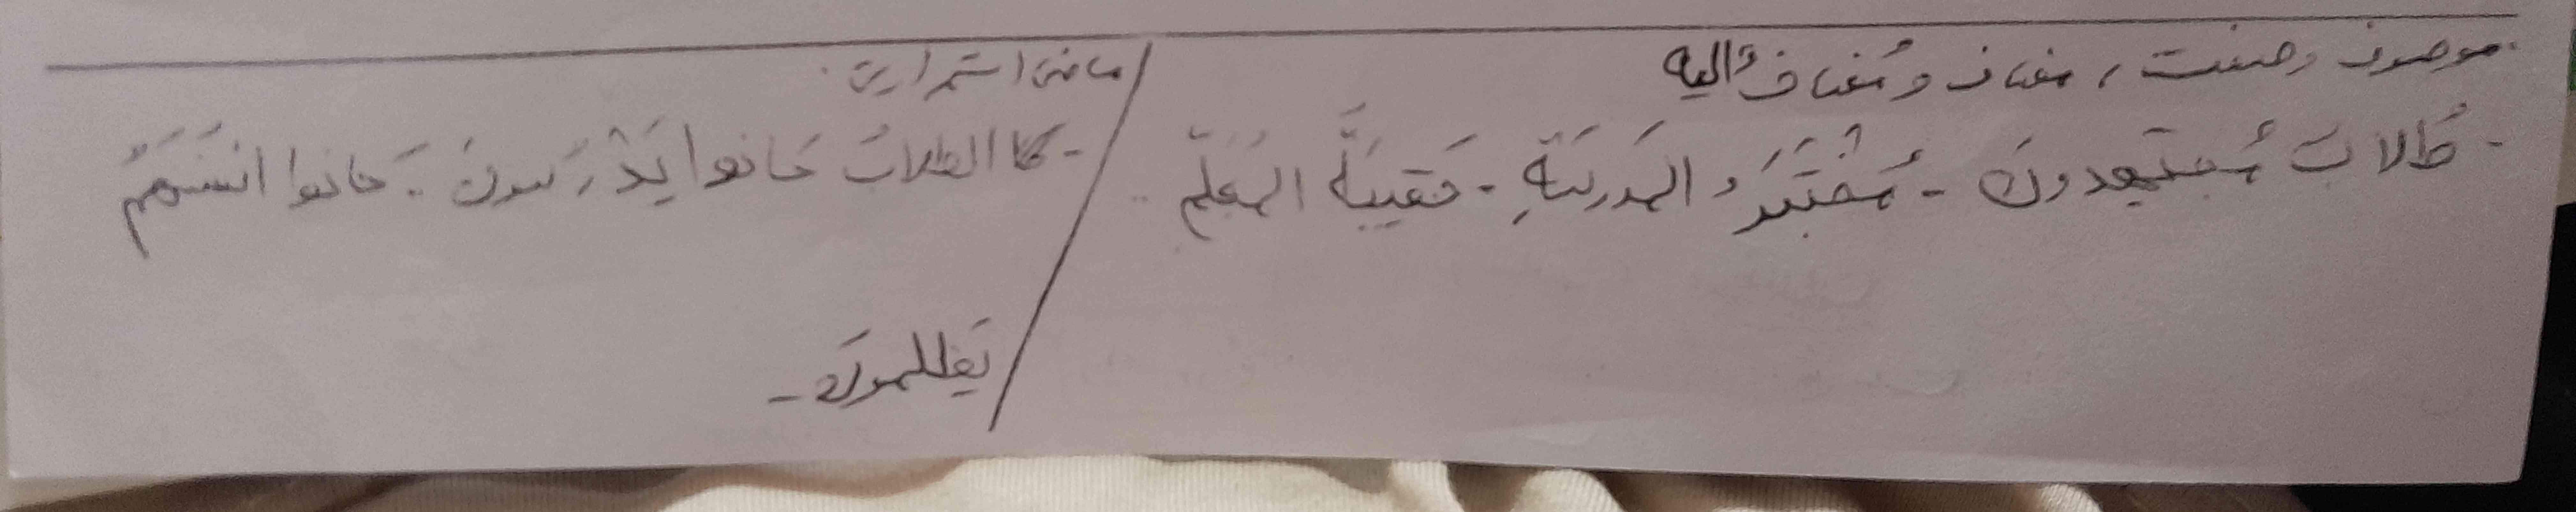 موصوف وصفت، مضاف و مُضاف إليه
- طُلابَ مُجتَهِدونَ - مُختَبَرُ المَدرسَةِ - حَقيبَةُ المُعَلِّم
ماضی استمراری:
- كا الطلابُ كانوا يَدْرُسونَ - كانوا
يَظلمون -